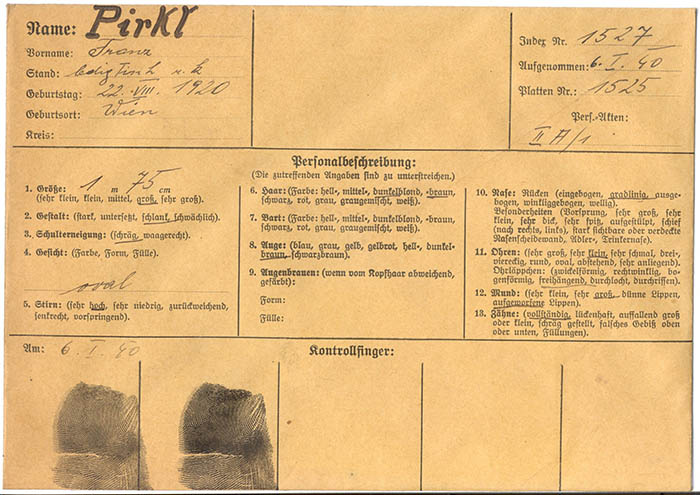 Name: Pirkl
Vorname: Franz
Stand: ledig
Geburtstag: 22. VIII. 1920
Geburtsort: Wien
Kreis:
Index Nr. 1527
Aufgenommen: 6. I. 40
Platten Nr.: 1525
Pers.-Akten:
II A/1
Personalbeschreibung:
(Die zutreffenden Angaben sind zu unterstreichen.)
1. Größe: 1 m 75 cm
(sehr klein, klein, mittel, groß, sehr groß).
2. Gestalt: (stark, untersetzt, schlank, schwächlich).
3. Schulterneigung: (schräg, waagerecht).
4. Gesicht: (Farbe, Form, Fülle).
oval
5. Stirn: (sehr hoch, sehr niedrig, zurückweichend,
senkrecht, vorspringend).
6. Haar: (Farbe: hell-, mittel-, dunkelblond, -braun,
schwarz, rot, grau, graugemischt, weiß).
7. Bart: (Farbe: hell-, mittel-, dunkelblond, -braun,
schwarz, rot, grau, graugemischt, weiß).
8. Auge: (blau, grau, gelb, gelbrot, hell-, dunkel-
braun, schwarzbraun).
9. Augenbrauen: (wenn vom Kopfhaar abweichend,
gefärbt):
Form:
Fülle:
10. Nase: Rücken (eingebogen, gradlinig, ausge-
bogen, winkliggebogen, wellig).
Besonderheiten (Vorsprung, sehr groß, sehr
klein, sehr dick, sehr spitz, aufgestülpt, schief
nach rechts, links), stark sichtbare oder verdeckte
Nasenscheidewand, Adler-, Trinkernase).
11. Ohren: (sehr groß, sehr klein, sehr schmal, drei-,
viereckig, rund, oval, abstehend, sehr anliegend).
Ohrläppchen: (zwickelförmig, rechtwinklig, bo-
genförmig, freihängend, durchlocht, durchrissen).
12. Mund: (sehr klein, sehr groß, dünne Lippen,
aufgeworfene Lippen).
13. Zähne: (vollständig, lückenhaft, auffallend groß
oder klein, schräg gestellt, falsches Gebiß oben
oder unten, Füllungen).
Am: 6. I. 40
Kontrollfinger: